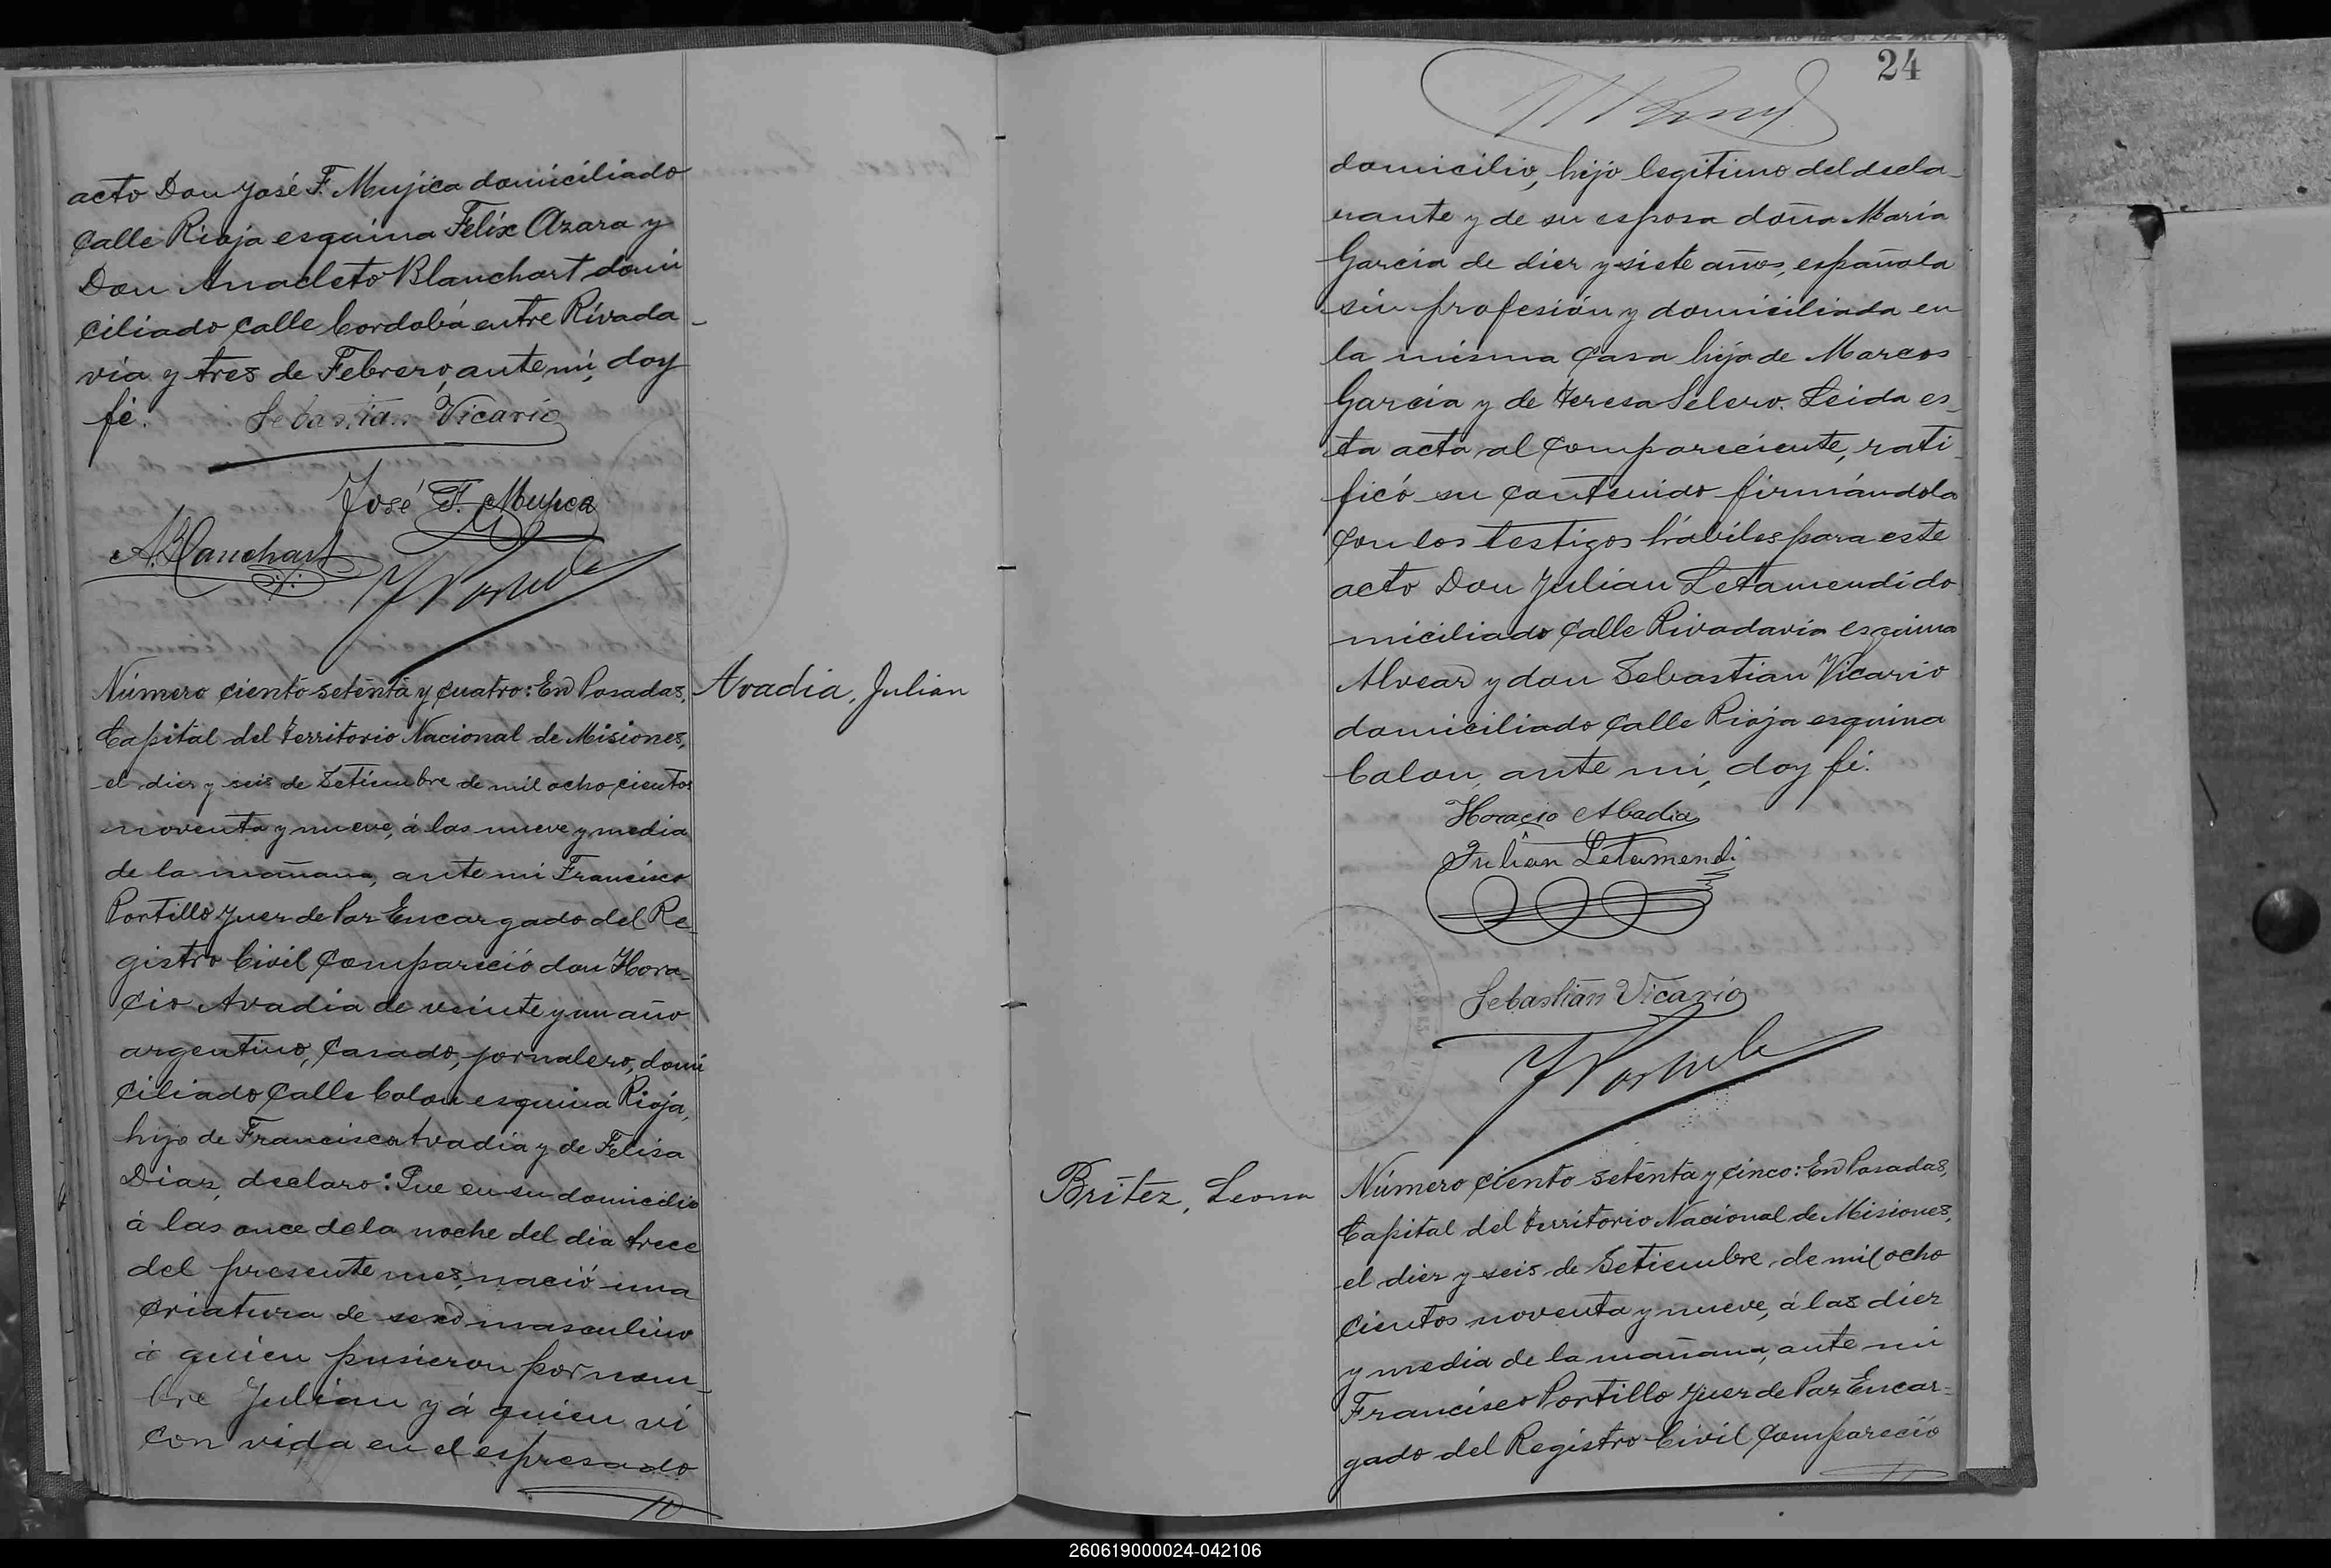 acto Don José F. Mujica domiciliado
calle Rioja esquina Felix Azara y
Don Anacleto Blanchart domi
ciliado calle Cordoba entre Rivada-
via y tres de Febrero, ante mi, doy
fé.
Sebastian Vicario
José F. Mujica
A. Blanchart
Número ciento setenta y cuatro: En Posadas,
Capital del Territorio Nacional de Misiones,
el diez y seis de Setiembre de mil ocho cientos
noventa y nueve, á las nueve y media
de la mañana, ante mi Francisco
Portillo Juez de Paz Encargado del Re-
gistro Civil compareció don Hora-
cio Avadia de veinte y un año
argentino, casado, jornalero, domi
ciliado calle Colon esquina Rioja,
hijo de Francisco Avadia y de Felisa
Diaz, declaro: Que en su domicilio
á las once de la noche del dia trece
del presente mes, nació una
criatura de sexo masculino
á quien pusieron por nom-
bre Julian y á quien vi
con vida en el espresado
Avadia, Julian
24
domicilio, hijo legitimo del decla-
rante y de su esposa doña Maria
Garcia de diez y siete años, española
sin profesión y domiciliada en
la misma casa hija de Marcos
Garcia y de Teresa Selero. Leida es-
ta acta al compareciente, rati-
ficó su contenido firmándola
con los testigos hábiles para este
acto Don Julian Letamendi do
miciliado calle Rivadavia esquina
Alvear y don Sebastian Vicario
domiciliado calle Rioja esquina
Colon, ante mi, doy fé.
Horacio Abadia
Julian Letamendi
Sebastian Vicario
Britez, Leona
Número ciento setenta y cinco: En Posadas,
Capital del Territorio Nacional de Misiones,
el diez y seis de Setiembre de mil ocho
cientos noventa y nueve, á las diez
y media de la mañana, ante mi
Francisco Portillo Juez de Paz Encar-
gado del Registro Civil compareció
260619000024-042106